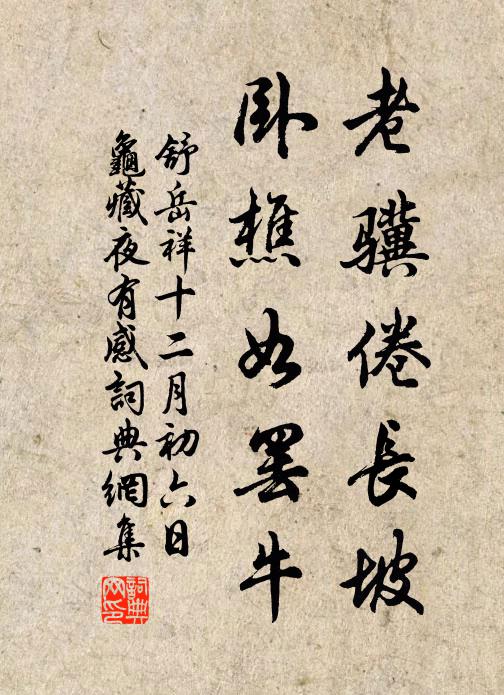 老骥倦長坡
卧樵如罢牛
舒岳祥十二月初六日
龜藏夜有感詞典網集
詞典
网印